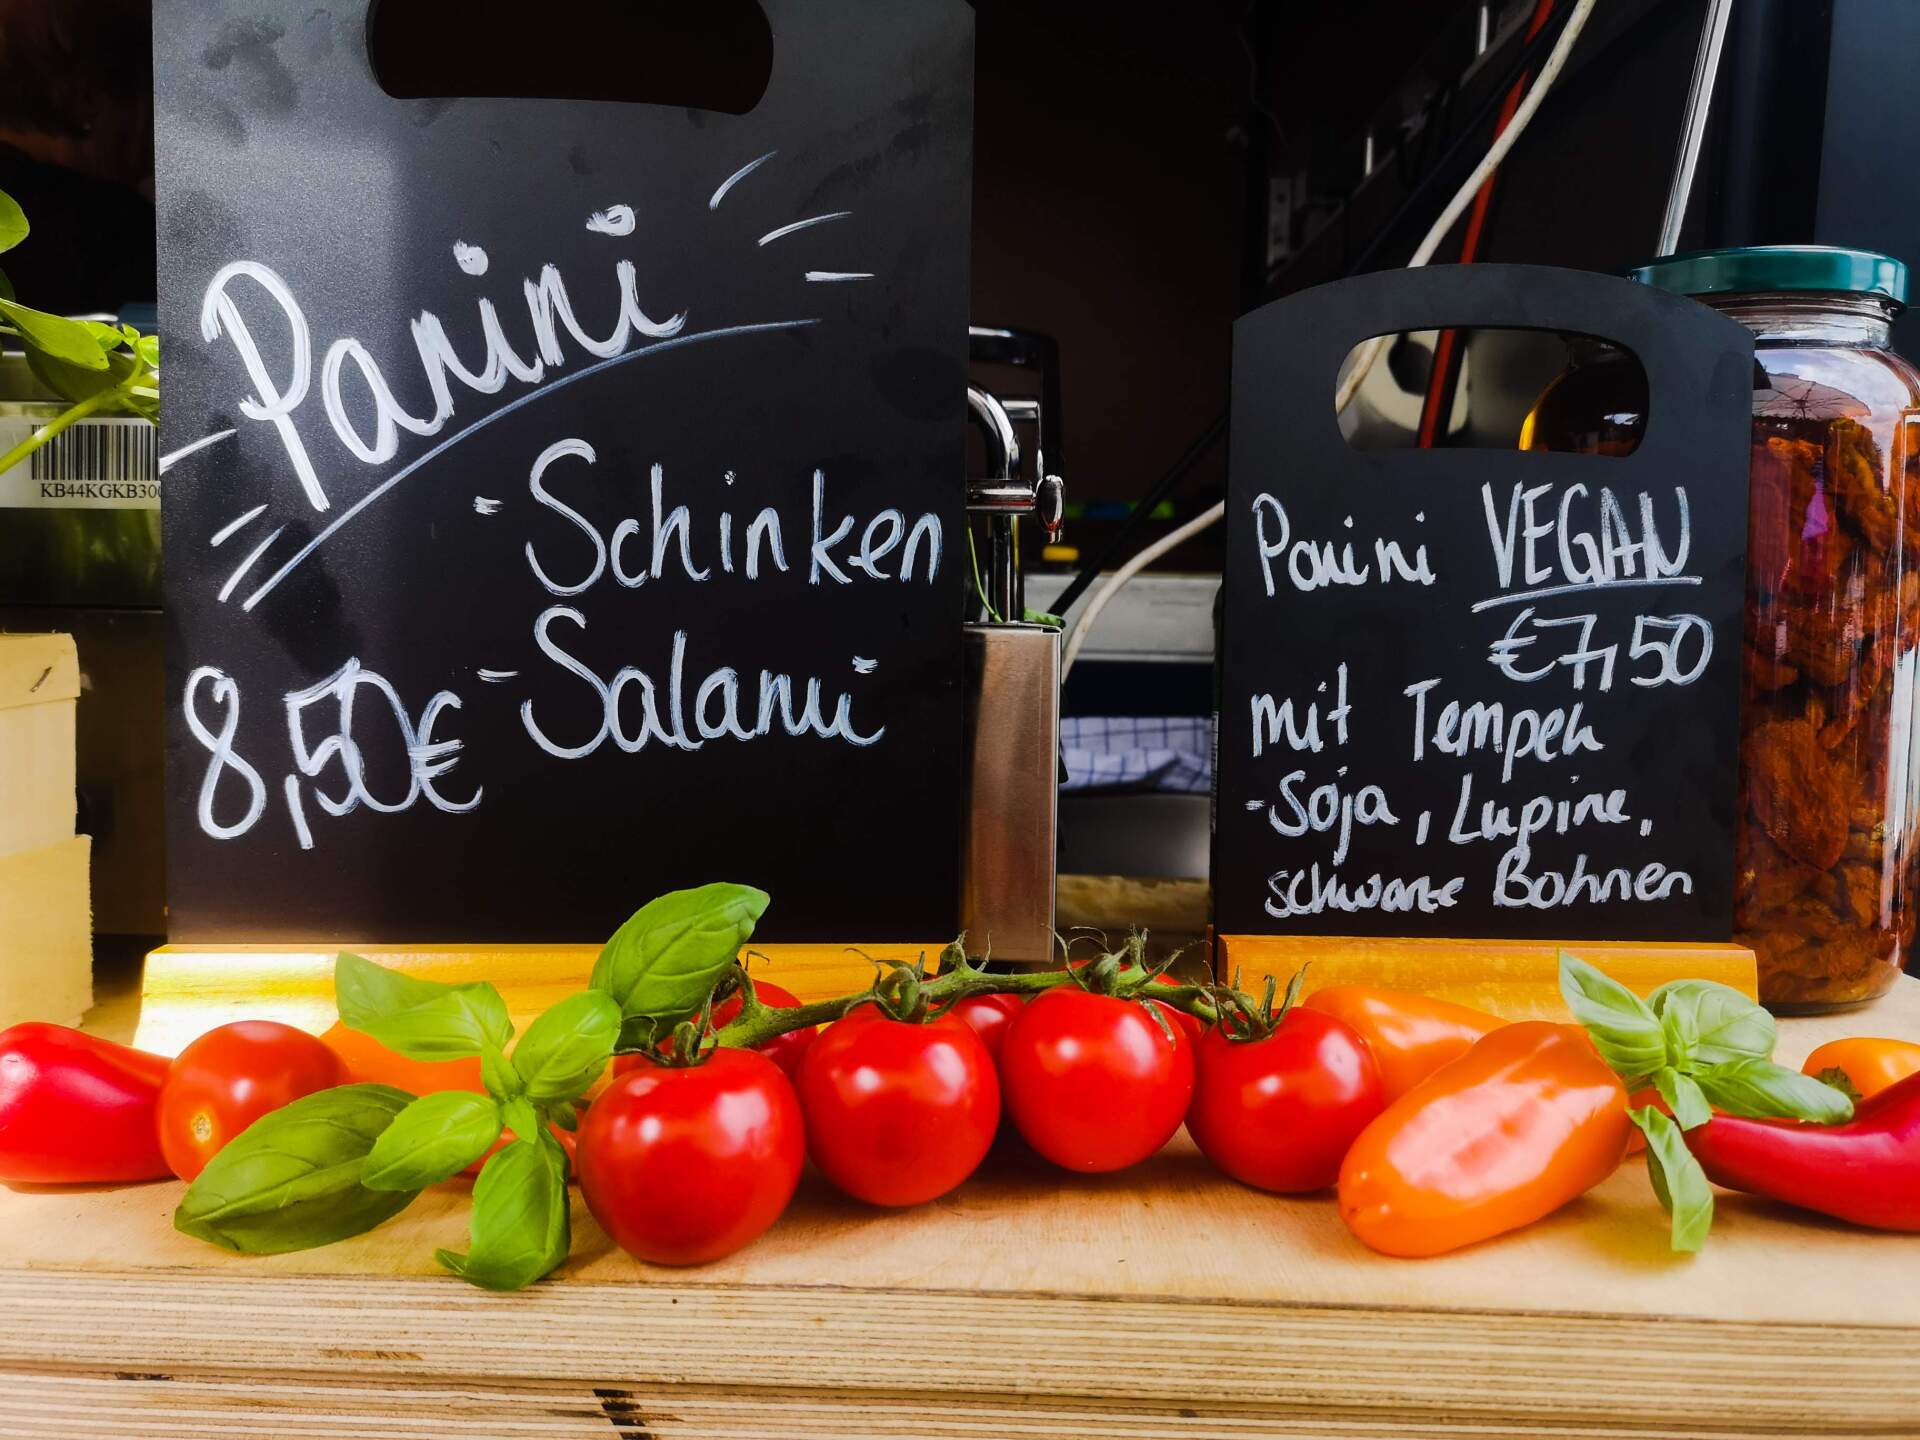 Panini
- Schinken
- Salami
8,50€
Panini VEGAN
€7,50
mit Tempeh
- Soja, Lupine,
schwarze Bohnen
KB44KGKB300